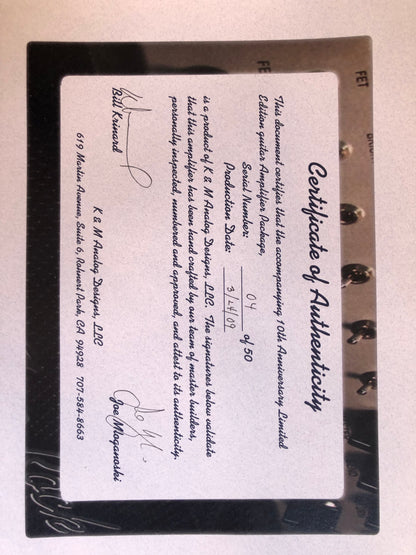 Certificate of Authenticity
This document certifies that the accompanying 10th Anniversary Limited
Edition guitar Amplifier Package,
Serial Number: 04 of 50
Production Date: 3/24/09
is a product of K & M Analog Designs, LLC. The signatures below validate
that this amplifier has been hand crafted by our team of master builders,
personally inspected, numbered and approved, and attest to its authenticity.
Bill Krinard
Joe Mloganoski
K & M Analog Designs, LLC
619 Martin Avenue, Suite 6, Rohnert Park, CA 94928 707-584-8663
FET
FE